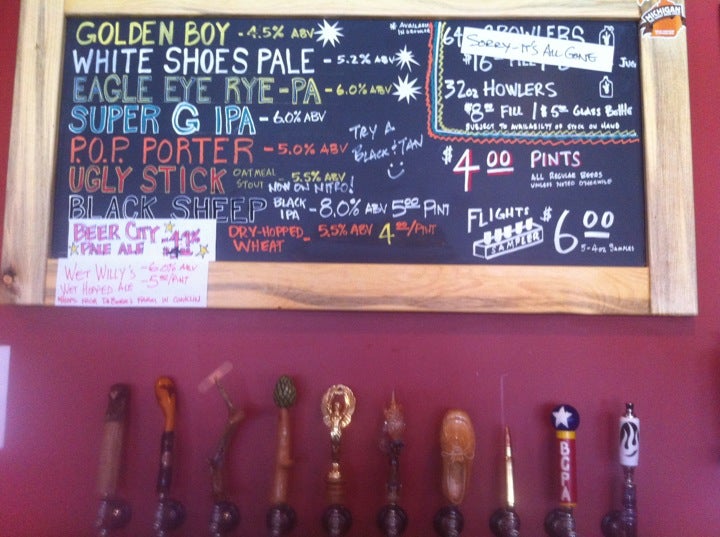 GOLDEN BOY - 4.5% ABV
* AVAILABLE IN GROWLER
WHITE SHOES PALE - 5.2% ABV
EAGLE EYE RYE-PA - 6.0% ABV
SUPER G IPA - 6.0% ABV
P.O.P. PORTER - 5.0% ABV
TRY A
BLACK & TAN
UGLY STICK OATMEAL STOUT - 5.5% ABV
NOW ON NITRO!
BLACK SHEEP BLACK IPA - 8.0% ABV 5.00 PINT
BEER CITY
PALE ALE
DRY-HOPPED WHEAT - 5.5% ABV 4.00/PINT
WET WILLY'S - 6.0% ABV
WET HOPPED ALE - 5.00/PINT
HOPS FROM FARM IN CONKLIN
64 GROWLERS
SORRY - IT'S ALL GONE
$16
JUG
32oz HOWLERS
$8.00 FILL / $5.00 GLASS BOTTLE
SUBJECT TO AVAILABILTY OF STOCK ON HAND
$4.00 PINTS
ALL REGULAR BEERS
UNLESS NOTED OTHERWISE
FLIGHTS $6.00
SAMPLER
5-4oz SAMPLES
MICHIGAN
BCPA